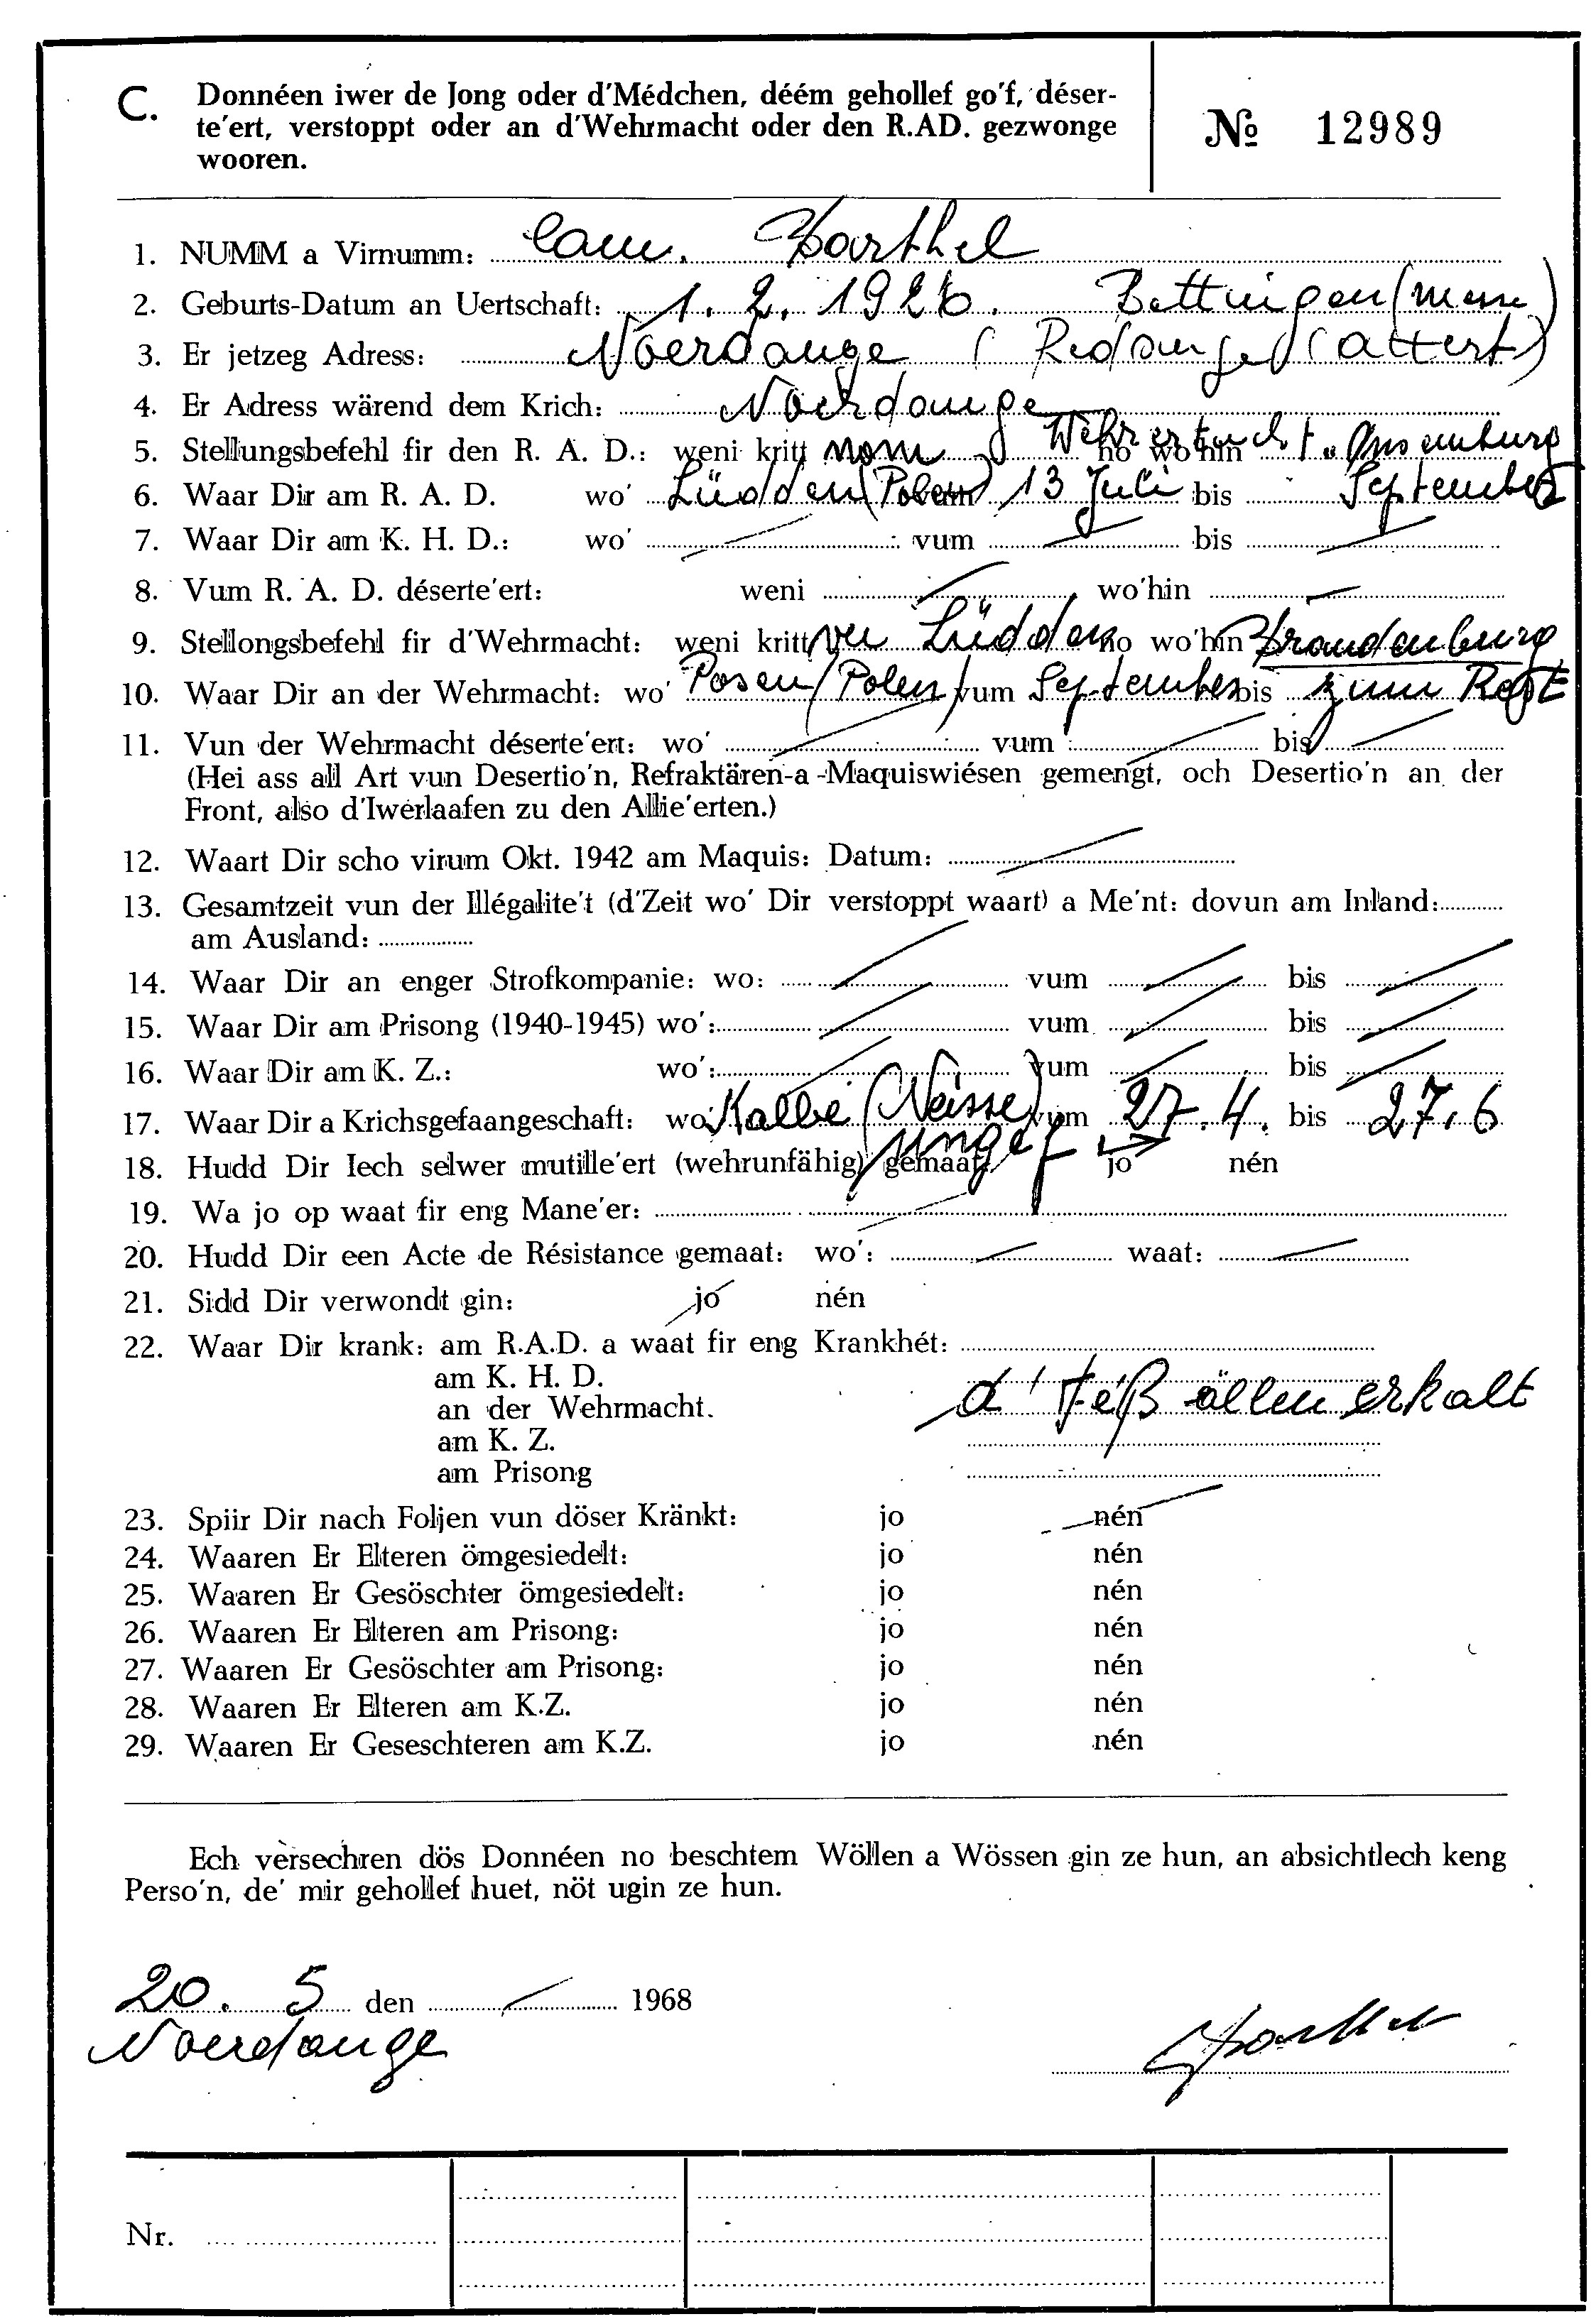 C. Donnéen iwer de Jong oder d'Médchen, déém gehollef go'f, déser-
te'ert, verstoppt oder an d'Wehrmacht oder den R.AD. gezwonge
wooren.
№ 12989
1. NUMM a Virnumm: Cam. Barthel
2. Geburts-Datum an Uertschaft: 1. 2. 1926. Bettingen (Messe)
3. Er jetzeg Adress: Noerdange (Redange/Attert)
4. Er Adress wärend dem Krich: Noerdange
5. Stellungsbefehl fir den R. A. D.: weni kritt vom Wehrertucht. no wo'hin Ansemburg
6. Waar Dir am R. A. D. wo' Lüdden (Polen) vum 13 Juli bis September
7. Waar Dir am K. H. D.: wo' vum bis
8. Vum R. A. D. déserte'ert: weni wo'hin
9. Stellongsbefehl fir d'Wehrmacht: weni kritt vu Lüdden no wo'hin Brandenburg
10. Waar Dir an der Wehrmacht: wo' Posen (Polen) vum September bis zum Rest
11. Vun der Wehrmacht déserte'ert: wo' vum bis
(Hei ass all Art vun Desertio'n, Refraktären-a-Maquiswiésen gemengt, och Desertio'n an der
Front, also d'Iwerlaafen zu den Allie'erten.)
12. Waart Dir scho virum Okt. 1942 am Maquis: Datum:
13. Gesamtzeit vun der Illégalite't (d'Zeit wo' Dir verstoppt waart) a Me'nt: dovun am Inland:
am Ausland:
14. Waar Dir an enger Strofkompanie: wo: vum bis
15. Waar Dir am Prisong (1940-1945) wo': vum bis
16. Waar Dir am K. Z.: wo': vum bis
17. Waar Dir a Krichsgefaangeschaft: wo' Kalbe (Neisse) vum 27. 4. bis 27. 6
ungef
18. Hudd Dir Iech selwer mutille'ert (wehrunfähig) gemaat: jo nén
19. Wa jo op waat fir eng Mane'er:
20. Hudd Dir een Acte de Résistance gemaat: wo': waat:
21. Sidd Dir verwondt gin: jo nén
22. Waar Dir krank: am R.A.D. a waat fir eng Krankhét:
am K. H. D.
an der Wehrmacht. d'Féß ällen erkalt
am K. Z.
am Prisong
23. Spiir Dir nach Foljen vun döser Kränkt: jo nén
24. Waaren Er Elteren ömgesiedelt: jo nén
25. Waaren Er Gesöschter ömgesiedelt: jo nén
26. Waaren Er Elteren am Prisong: jo nén
27. Waaren Er Gesöschter am Prisong: jo nén
28. Waaren Er Elteren am K.Z. jo nén
29. Waaren Er Geseschteren am K.Z. jo nén
Ech versechren dös Donnéen no beschtem Wöllen a Wössen gin ze hun, an absichtlech keng
Perso'n, de' mir gehollef huet, nöt ugin ze hun.
20. 5 den 1968
Noerdange
Barthel
Nr.